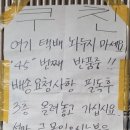 쿠친
여기 택배 놔두지 마세요
45번째 반품함!!
배송요청사항 필독후
3층 올려놓고 가십시요